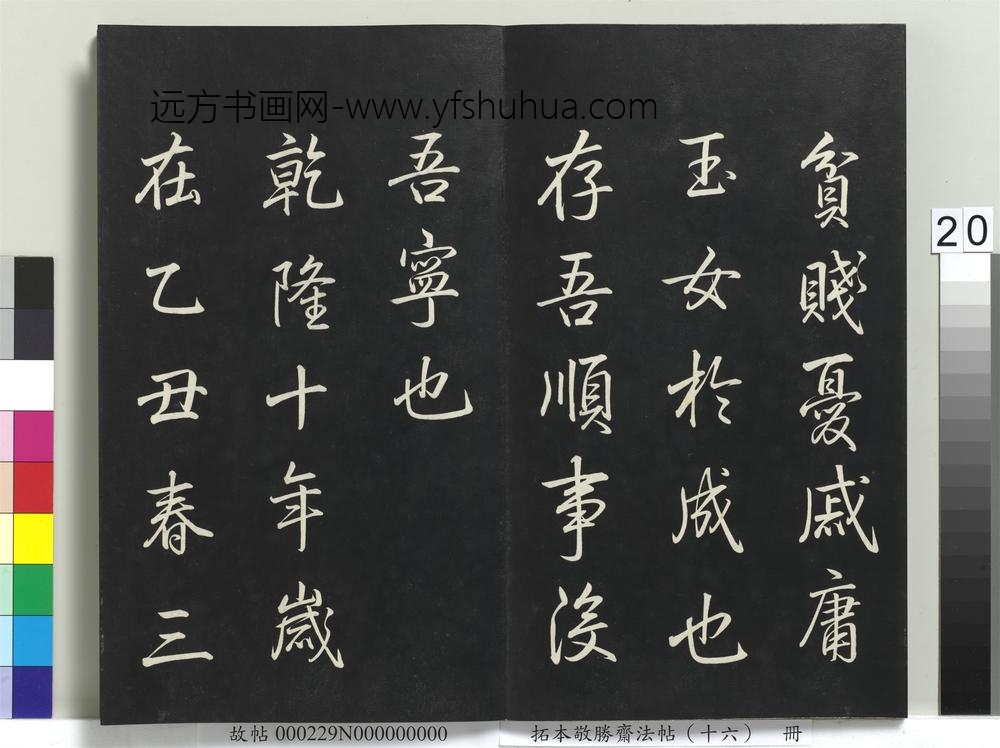 远方书画网-www.yfshuhua.com
貧賤憂戚庸
玉女於成也
存吾順事没
吾寧也
乾隆十年歲
在乙丑春三
20
故帖 000229N000000000
拓本敬勝齋法帖（十六） 冊